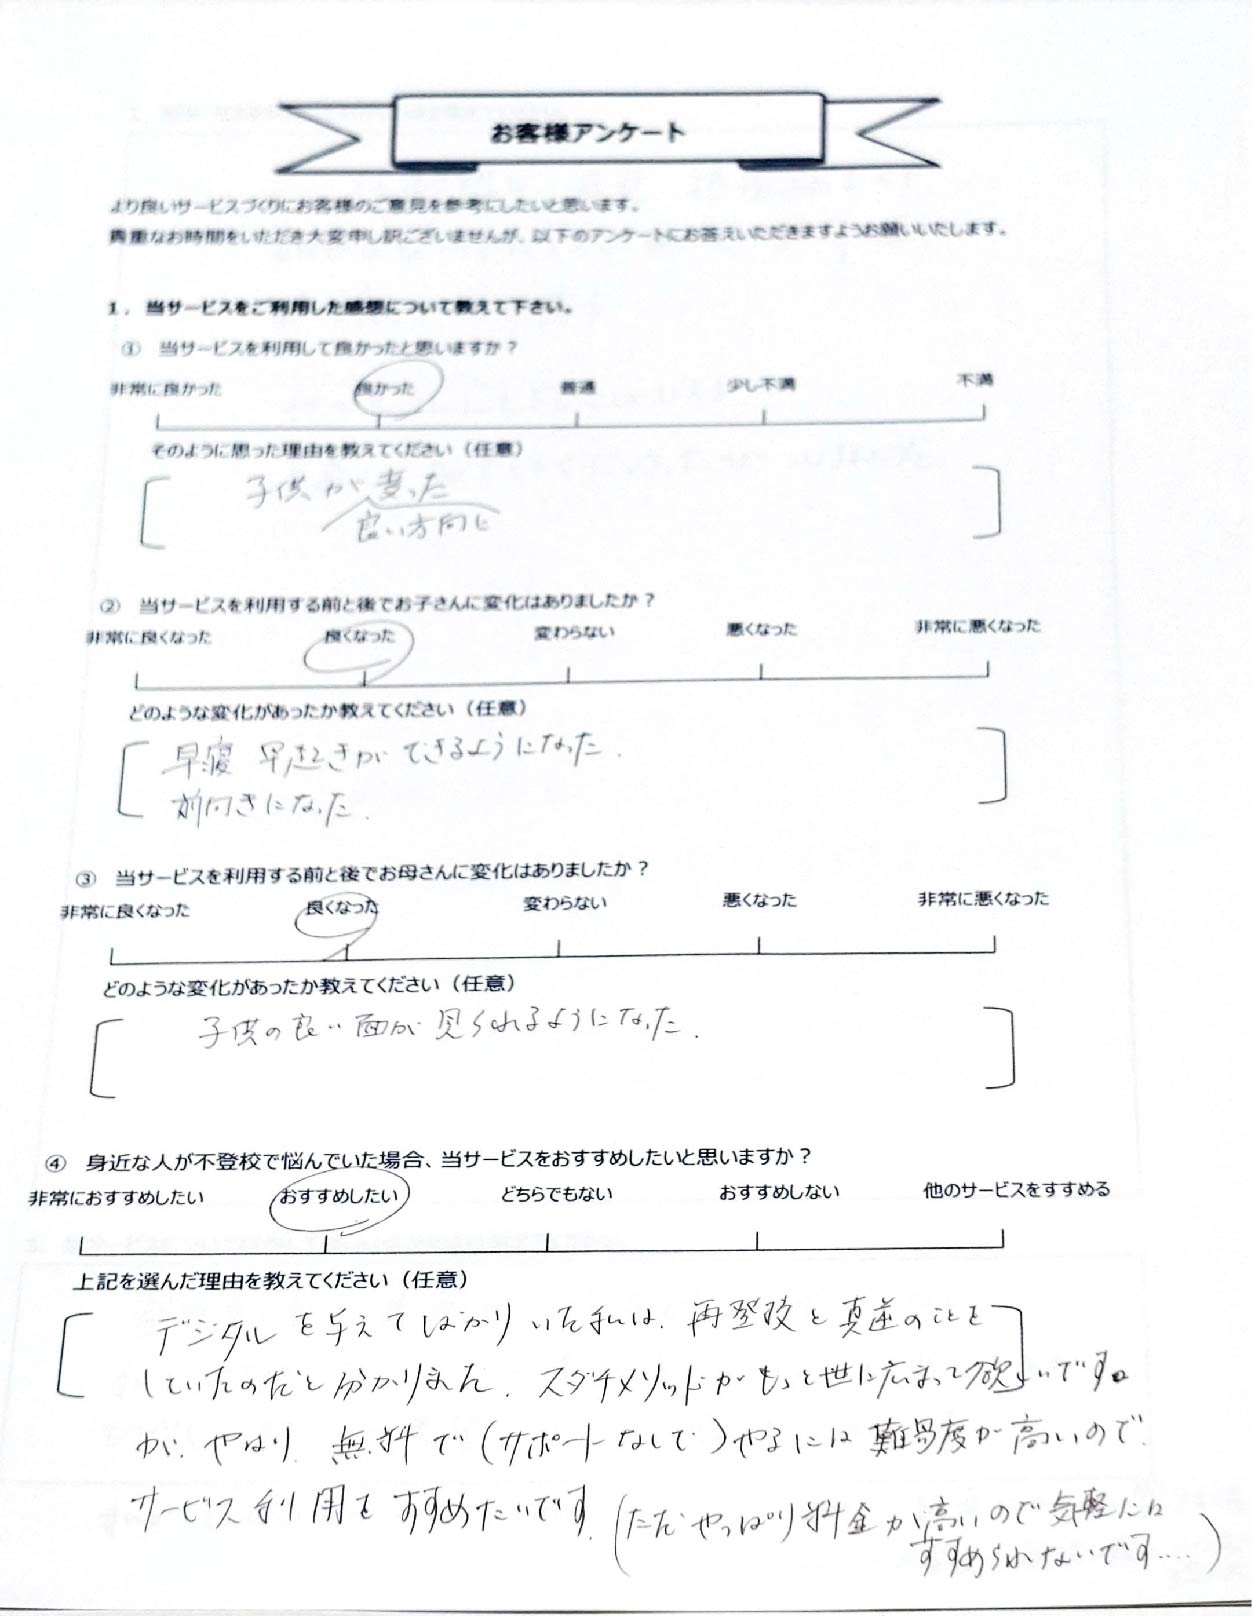 お客様アンケート
より良いサービスづくりにお客様のご意見を参考にしたいと思います。
貴重なお時間をいただき大変申し訳ございませんが、以下のアンケートにお答えいただきますようお願いいたします。
1. 当サービスをご利用した感想について教えて下さい。
① 当サービスを利用して良かったと思いますか？
非常に良かった 良かった 普通 少し不満 不満
そのように思った理由を教えてください（任意）
子供が変った
良い方向に
② 当サービスを利用する前と後でお子さんに変化はありましたか？
非常に良くなった 良くなった 変わらない 悪くなった 非常に悪くなった
どのような変化があったか教えてください（任意）
早寝 早起きができるようになった.
前向きになった.
③ 当サービスを利用する前と後でお母さんに変化はありましたか？
非常に良くなった 良くなった 変わらない 悪くなった 非常に悪くなった
どのような変化があったか教えてください（任意）
子供の良い面が見られるようになった.
④ 身近な人が不登校で悩んでいた場合、当サービスをおすすめしたいと思いますか？
非常におすすめしたい おすすめしたい どちらでもない おすすめしない 他のサービスをすすめる
上記を選んだ理由を教えてください（任意）
デジタルを与えてばかりいた私は、再登校と真逆のことを
していたのだと分かりました. スダチメソッドがもっと世に広まって欲しいです。
が、やはり、無料で(サポートなしで)やるには難易度が高いので、
サービス利用をすすめたいです.(ただやっぱり料金が高いので気軽には
すすめられないです....)